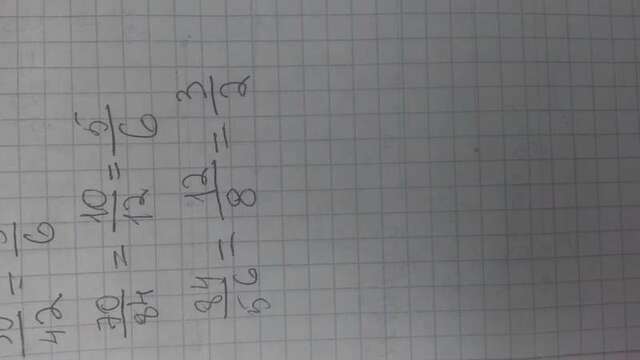 /42 = /6
70/84 = 10/12 = 5/6
84/56 = 12/8 = 3/2